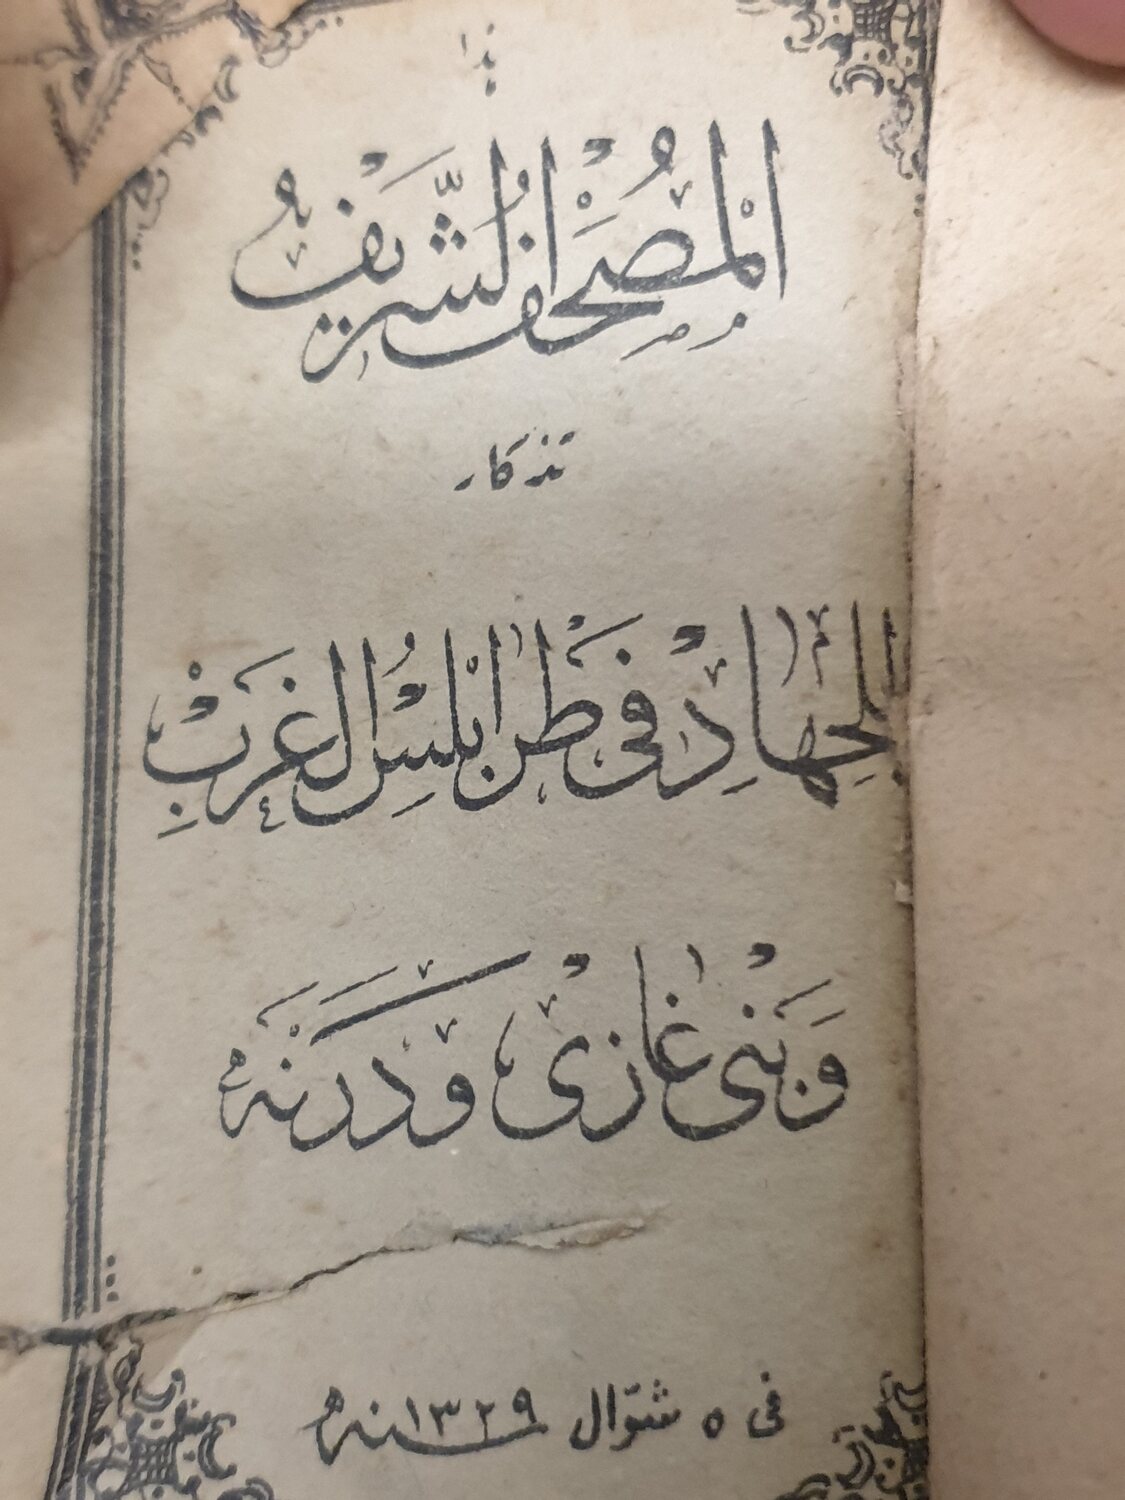 هذا
المصحف الشريف
تذكار
للجهاد في طرابلس الغرب
وبنى غازى ودرنه
فى ٥ شوّال سنه ١٣٢٩